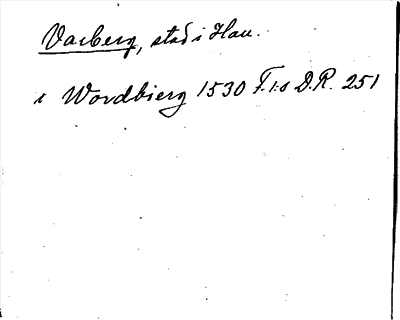 Varberg, stad i Hall.
i Wordbierg 1530 F.I:s D.R. 251